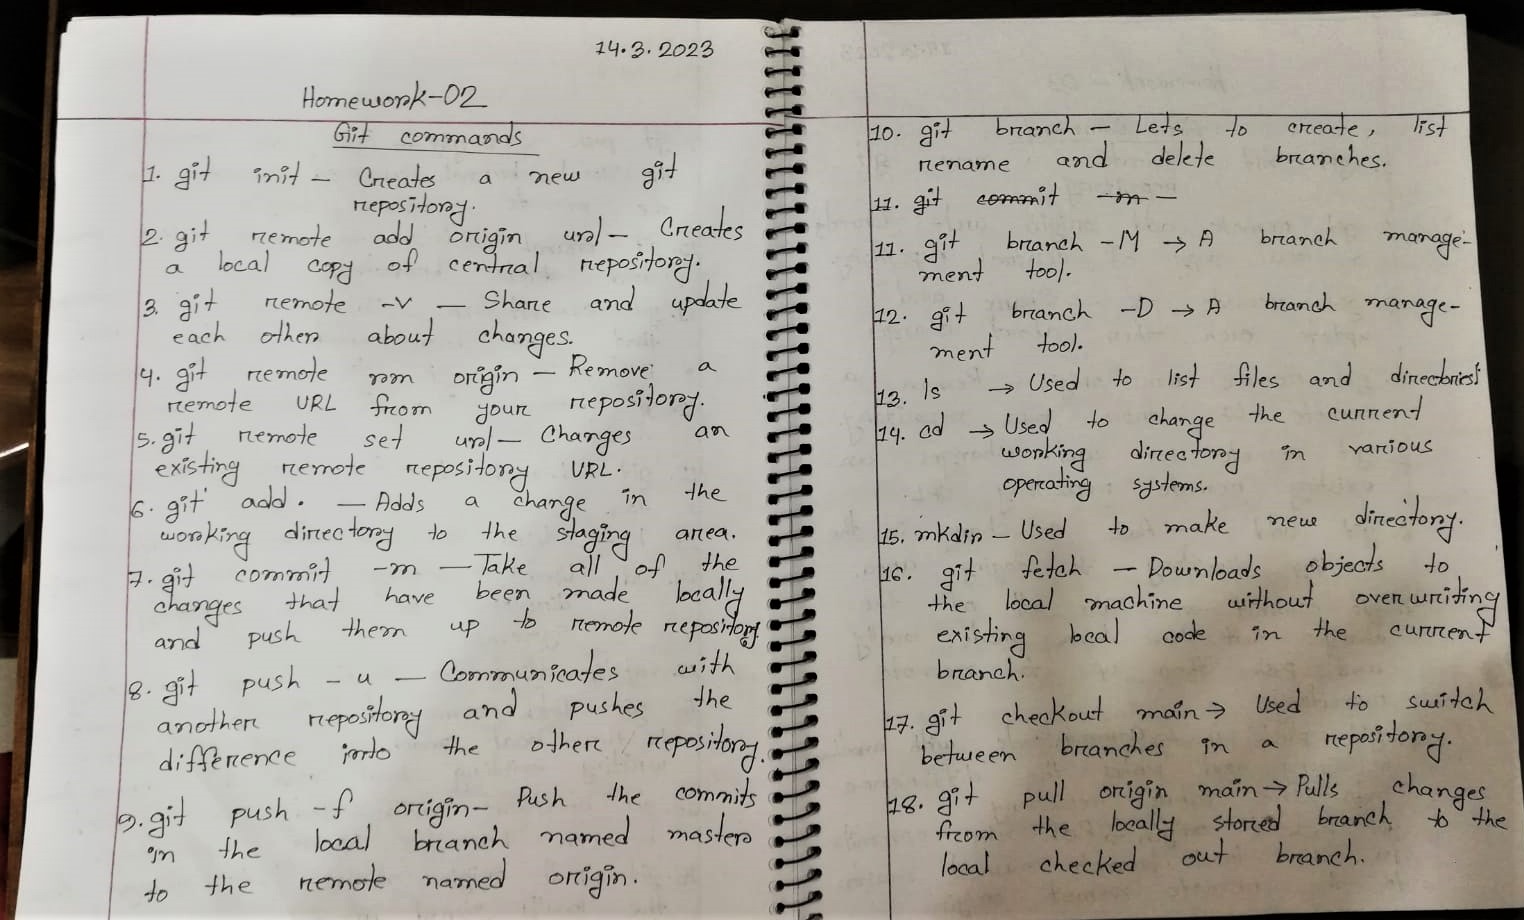 14.3.2023
Homework-02
Git commands
1. git init – Creates a new git
repository.
2. git remote add origin url – Creates
a local copy of central repository.
3. git remote -v – Share and update
each other about changes.
4. git remote rm origin – Remove a
remote URL from your repository.
5. git remote set url – Changes an
existing remote repository URL.
6. git add . – Adds a change in the
working directory to the staging area.
7. git commit -m – Take all of the
changes that have been made locally
and push them up to remote repository
8. git push -u – Communicates with
another repository and pushes the
difference into the other repository.
9. git push -f origin – Push the commits
in the local branch named master
to the remote named origin.
10. git branch – Lets to create, list
rename and delete branches.
11. git commit -m –
11. git branch -M → A branch manage-
ment tool.
12. git branch -D → A branch manage-
ment tool.
13. ls → Used to list files and directories
14. cd → Used to change the current
working directory in various
operating systems.
15. mkdir – Used to make new directory.
16. git fetch – Downloads objects to
the local machine without overwriting
existing local code in the current
branch.
17. git checkout main → Used to switch
between branches in a repository.
18. git pull origin main → Pulls changes
from the locally stored branch to the
local checked out branch.